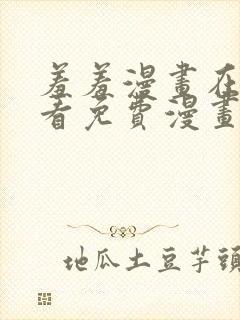 羞羞漫畫在
看免費漫畫
地瓜土豆芋頭